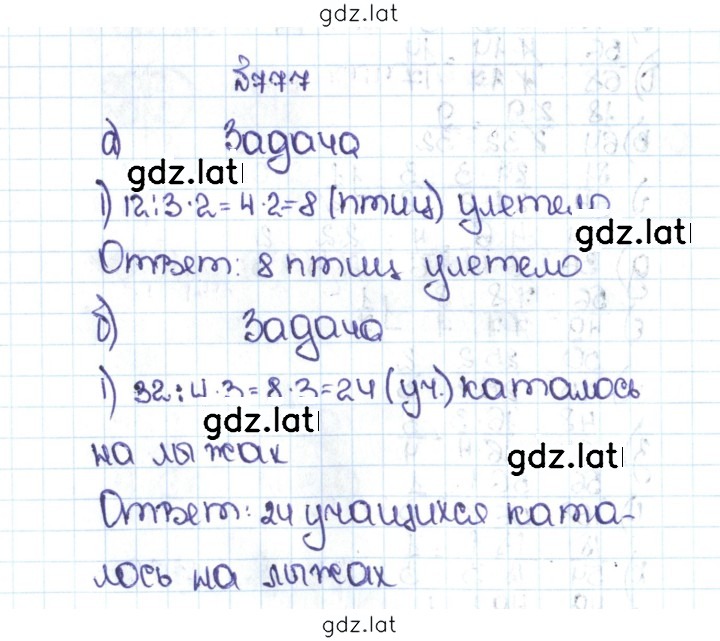 gdz.lat
№777
а) Задача
gdz.lat
1) 12:3·2=4·2=8 (птиц) улетело
gdz.lat
Ответ: 8 птиц улетело
б) Задача
1) 32:4·3=8·3=24 (уч.) каталось
gdz.lat
на лыжах
gdz.lat
Ответ: 24 учащихся ката-
лось на лыжах
gdz.lat